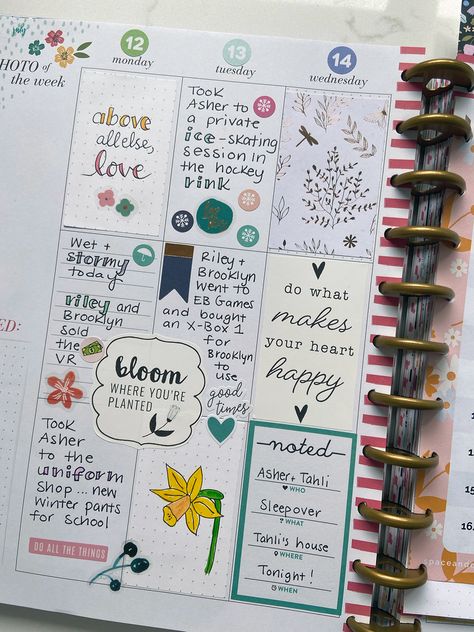 July
PHOTO of
the week
12
monday
13
tuesday
14
wednesday
above
all else,
love
Took
Asher to
a private
ice-skating
session in
the hockey
rink
Wet +
stormy
today
riley and
Brooklyn
sold
the
VR
Riley +
Brooklyn
Went to
EB Games
and bought
an X-Box 1
for
Brooklyn
to use
good
times
do what
makes
your heart
happy
bloom
WHERE YOU'RE
PLANTED
Took
Asher
to the
uniform
Shop ... new
Winter pants
for school
DO ALL THE THINGS
noted
Asher + Tahli
WHO
Sleepover
WHAT
Tahli's house
WHERE
Tonight!
WHEN
ED: